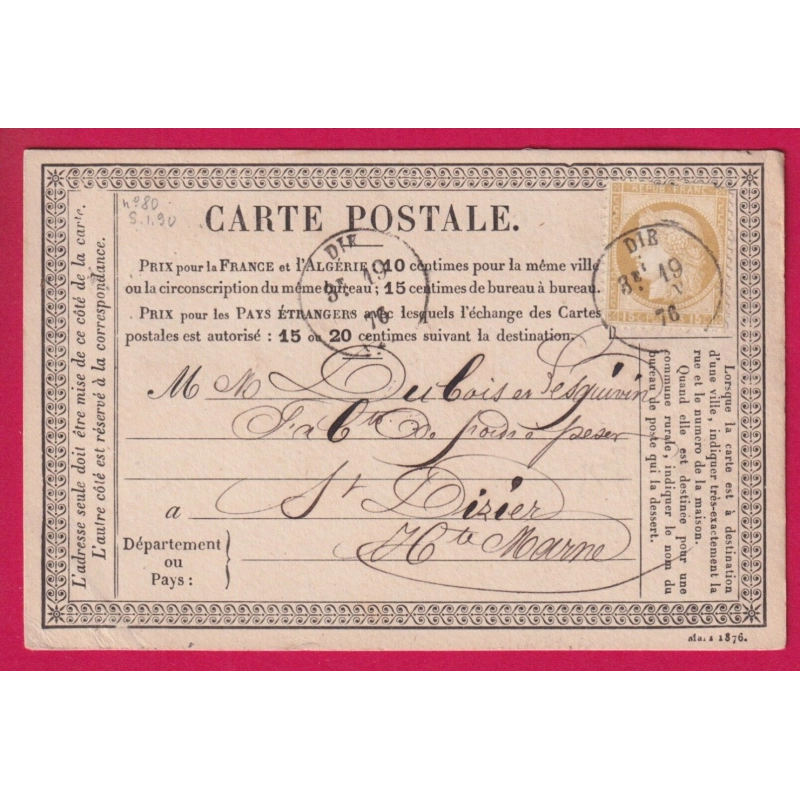 L'adresse seule doit être mise de ce côté de la carte.
L'autre côté est réservé à la correspondance.
n° 80
S.1.90
CARTE POSTALE.
REPUB. FRANC.
15 C 15 C
DIE
19
76
DIE
19
76
PRIX pour la FRANCE et l'ALGÉRIE 10 centimes pour la même ville
ou la circonscription du même bureau; 15 centimes de bureau à bureau.
PRIX pour les PAYS ÉTRANGERS avec lesquels l'échange des Cartes
postales est autorisé : 15 ou 20 centimes suivant la destination.
M M Dubois et
Fab de poids à peser
a St Dizier
Hte Marne
Département
ou
Pays :
Lorsque la carte est à destination
d'une ville, indiquer très-exactement la
rue et le numéro de la maison.
Quand elle est destinée pour une
commune rurale, indiquer le nom du
bureau de poste qui la dessert.
Mars 1876.